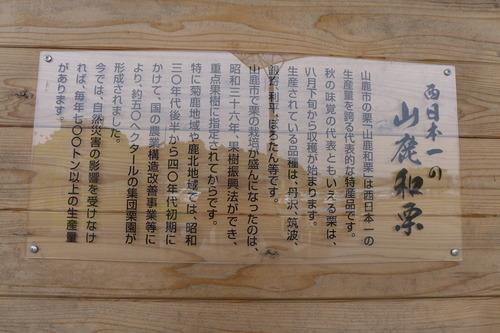 西日本一の
山鹿和栗
山鹿市の栗「山鹿和栗」は西日本一の
生産量を誇る代表的な特産品です。
秋の味覚の代表ともいえる栗は、
八月下旬から収穫が始まります。
生産されている品種は、丹沢、筑波、
銀寄、利平、ぽろたん等です。
山鹿市で栗の栽培が盛んになったのは、
昭和三十六年、果樹振興法ができ、
重点果樹に指定されてからです。
特に菊鹿地域や鹿北地域では、昭和
三〇年代後半から四〇年代初期に
かけて、国の農業構造改善事業等に
より、約五〇〇ヘクタールの集団栗園が
形成されました。
今では、自然災害の影響を受けなけ
れば、毎年七〇〇トン以上の生産量
があります。